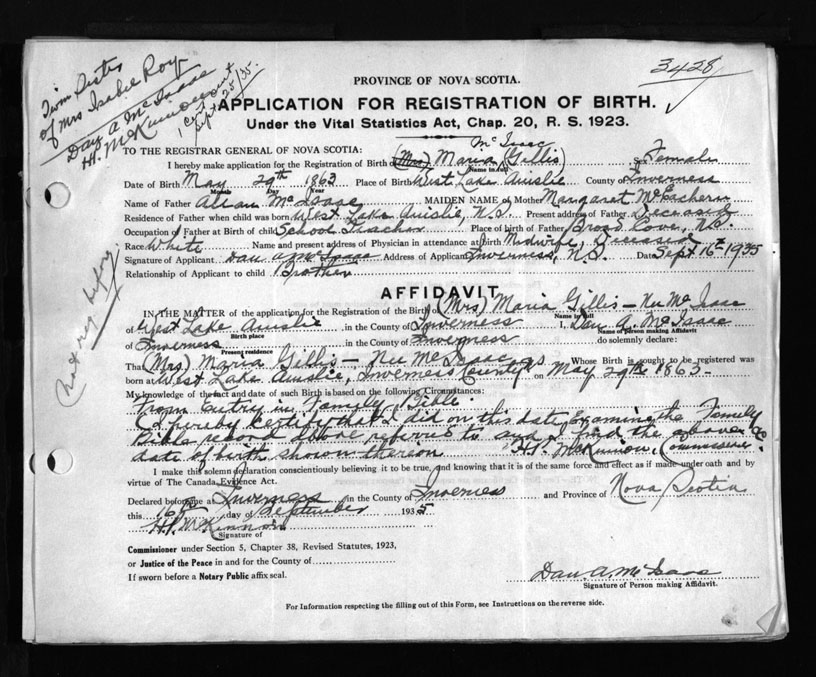 Twin Sister
of Mrs Isabel Roy
Dan A McIsaac
H. McKinnon
1 cert
Sept 25/35.
3428
PROVINCE OF NOVA SCOTIA.
APPLICATION FOR REGISTRATION OF BIRTH.
Under the Vital Statistics Act, Chap. 20, R. S. 1923.
TO THE REGISTRAR GENERAL OF NOVA SCOTIA:
McIsaac
I hereby make application for the Registration of Birth of (Mrs) Maria (Gillis) Sex Female
Name in full
Date of Birth May 29th 1863 Place of Birth West Lake Ainslie County of Inverness
Month Day Year
Name of Father Allan McIsaac MAIDEN NAME of Mother Margaret McEachern
Residence of Father when child was born West Lake Ainslie, N.S. Present address of Father Deceased
Occupation of Father at Birth of child School Teacher Place of birth of Father Broad Cove, N.S.
Race White Name and present address of Physician in attendance at birth Midwife, Deceased
Signature of Applicant Dan A McIsaac Address of Applicant Inverness, N.S. Date Sept 16th 1935
Relationship of Applicant to child Brother
(not reg before)
AFFIDAVIT.
IN THE MATTER of the application for the Registration of the Birth of (Mrs) Maria Gillis — Nee McIsaac
Name in full
of West Lake Ainslie, in the County of Inverness I, Dan A. McIsaac
Birth place Name of person making Affidavit
of Inverness in the County of Inverness do solemnly declare:
Present residence
That (Mrs) Maria Gillis — Nee McIsaac Whose Birth is sought to be registered was
born at West Lake Ainslie, Inverness County N.S. on May 29th 1863.
My knowledge of the fact and date of such Birth is based on the following Circumstances:
From Entry in Family Bible.
(I hereby certify that I did on this date, Examine the Family
Bible record above referred to and I find the above
date of birth shown thereon H.P. McKinnon, Commissioner
I make this solemn declaration conscientiously believing it to be true, and knowing that it is of the same force and effect as if made under oath and by
virtue of The Canada Evidence Act.
Declared before me at Inverness in the County of Inverness and Province of Nova Scotia
this 16th day of September 1935
H.P. McKinnon
Signature of
Commissioner under Section 5, Chapter 38, Revised Statutes, 1923,
or Justice of the Peace in and for the County of
If sworn before a Notary Public affix seal.
Dan. A. McIsaac
Signature of Person making Affidavit.
For Information respecting the filling out of this Form, see Instructions on the reverse side.